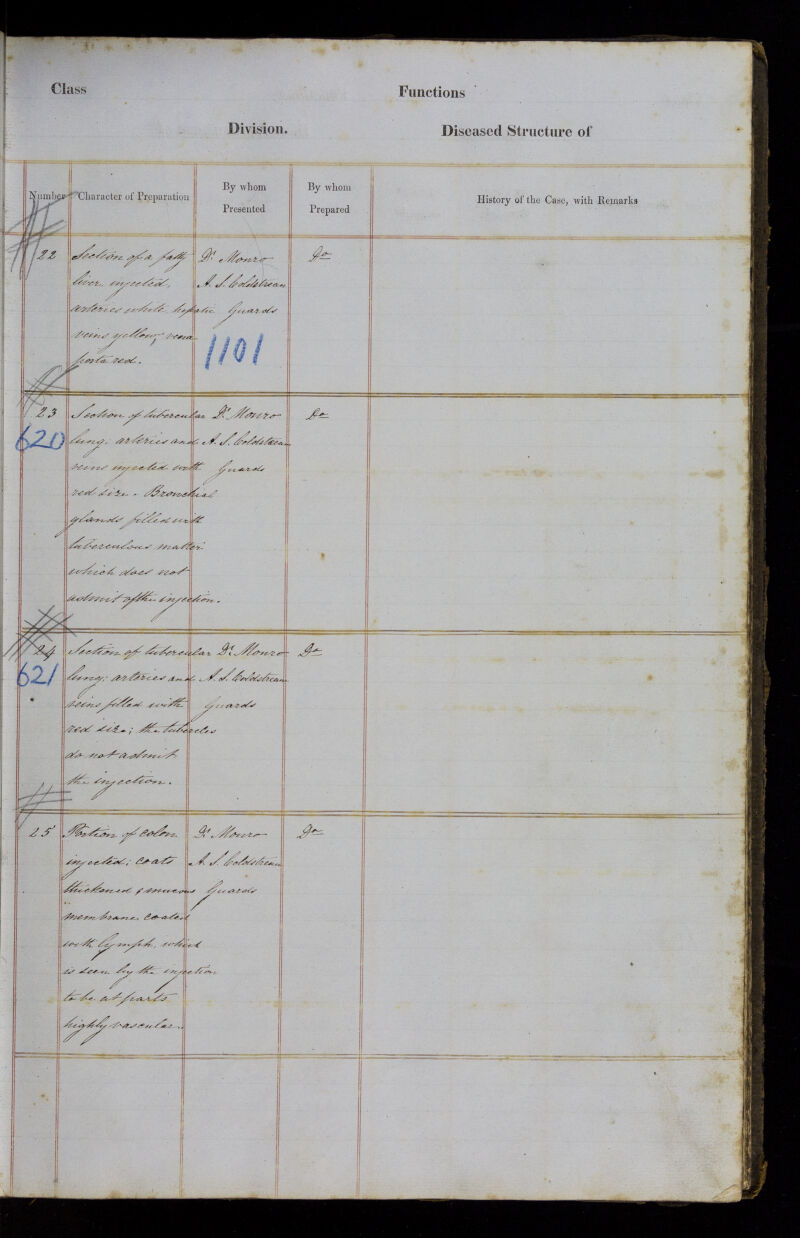 Class Functions
Division. Diseased Structure of
Number Character of Preparation By whom Presented By whom Prepared History of the Case, with Remarks
22 Section of a fatty Dr. Monro Do
liver injected, A. S. Coldstream
arteries white hepatic Guards
veins yellow, vena
porta red. 1101
23 Section of tubercular Dr. Monro Do
620 lung. arteries and A. S. Coldstream
veins injected with Guards
red size. Bronchial
glands filled with
tuberculous matter
which does not
admit of the injection.
24 Section of tubercular Dr. Monro Do
621 lung: arteries and A. S. Coldstream
veins filled with Guards
red size; the tubercles
do not admit
the injection.
25 Portion of colon Dr. Monro Do
injected; coats A. S. Coldstream
thickened & mucous Guards
membrane coated
with lymph, which
is seen by the injection
to be at parts
highly vascular.